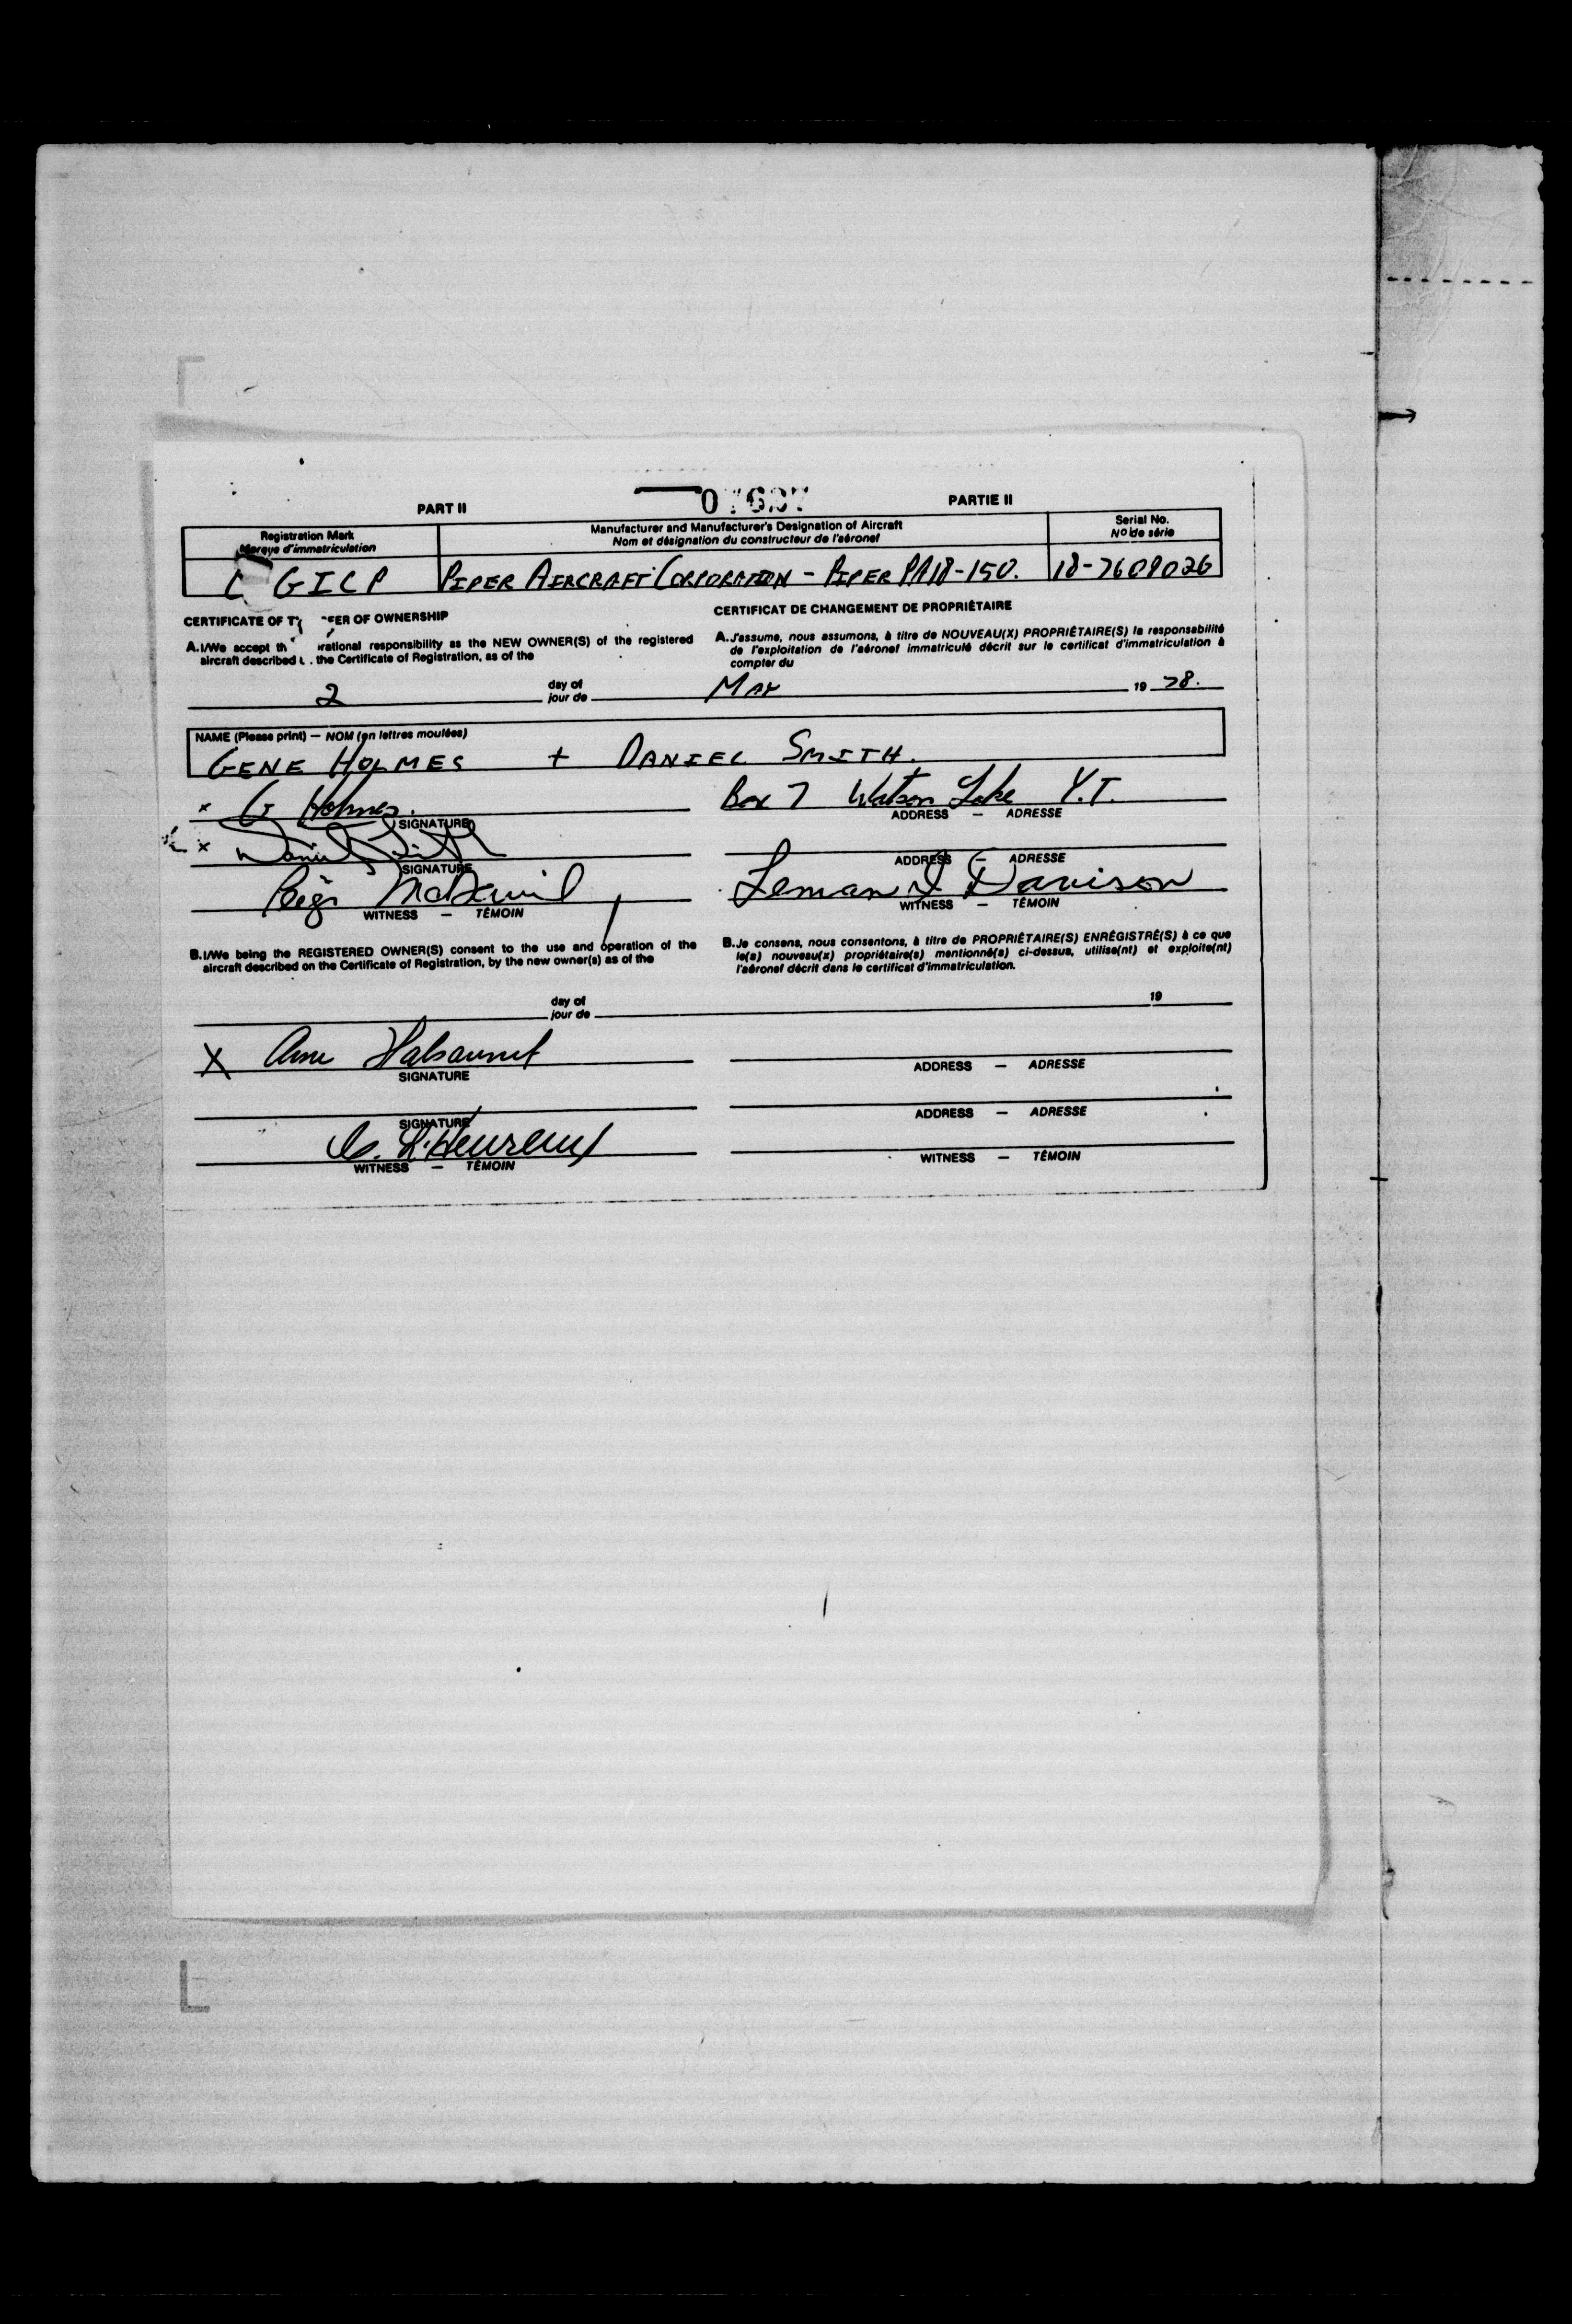 PART II PARTIE II
Registration Mark
Marque d'immatriculation
Manufacturer and Manufacturer's Designation of Aircraft
Nom et désignation du constructeur de l'aéronef
Serial No.
No de série
C GICP PIPER AIRCRAFT CORPORATION - PIPER PA18-150. 18-7609026
CERTIFICATE OF FER OF OWNERSHIP
A. I/We accept th rational responsibility as the NEW OWNER(S) of the registered
aircraft described the Certificate of Registration, as of the
CERTIFICAT DE CHANGEMENT DE PROPRIÉTAIRE
A. J'assume, nous assumons, à titre de NOUVEAU(X) PROPRIÉTAIRE(S) la responsabilité
de l'exploitation de l'aéronef immatriculé décrit sur le certificat d'immatriculation à
compter du
2 day of
jour de MAY 19 78.
NAME (Please print) — NOM (en lettres moulées)
GENE HOLMES + DANIEL SMITH.
x G Holmes. Box 7 Watson Lake Y.T.
SIGNATURE ADDRESS — ADRESSE
x Daniel Smith
SIGNATURE ADDRESS — ADRESSE
Leman Davison
WITNESS — TÉMOIN WITNESS — TÉMOIN
B. I/We being the REGISTERED OWNER(S) consent to the use and operation of the
aircraft described on the Certificate of Registration, by the new owner(s) as of the
B. Je consens, nous consentons, à titre de PROPRIÉTAIRE(S) ENRÉGISTRÉ(S) à ce que
le(s) nouveau(x) propriétaire(s) mentionné(s) ci-dessus, utilise(nt) et exploite(nt)
l'aéronef décrit dans le certificat d'immatriculation.
day of
jour de 19
X
SIGNATURE ADDRESS — ADRESSE
SIGNATURE ADDRESS — ADRESSE
C. L'Heureux
WITNESS — TÉMOIN WITNESS — TÉMOIN